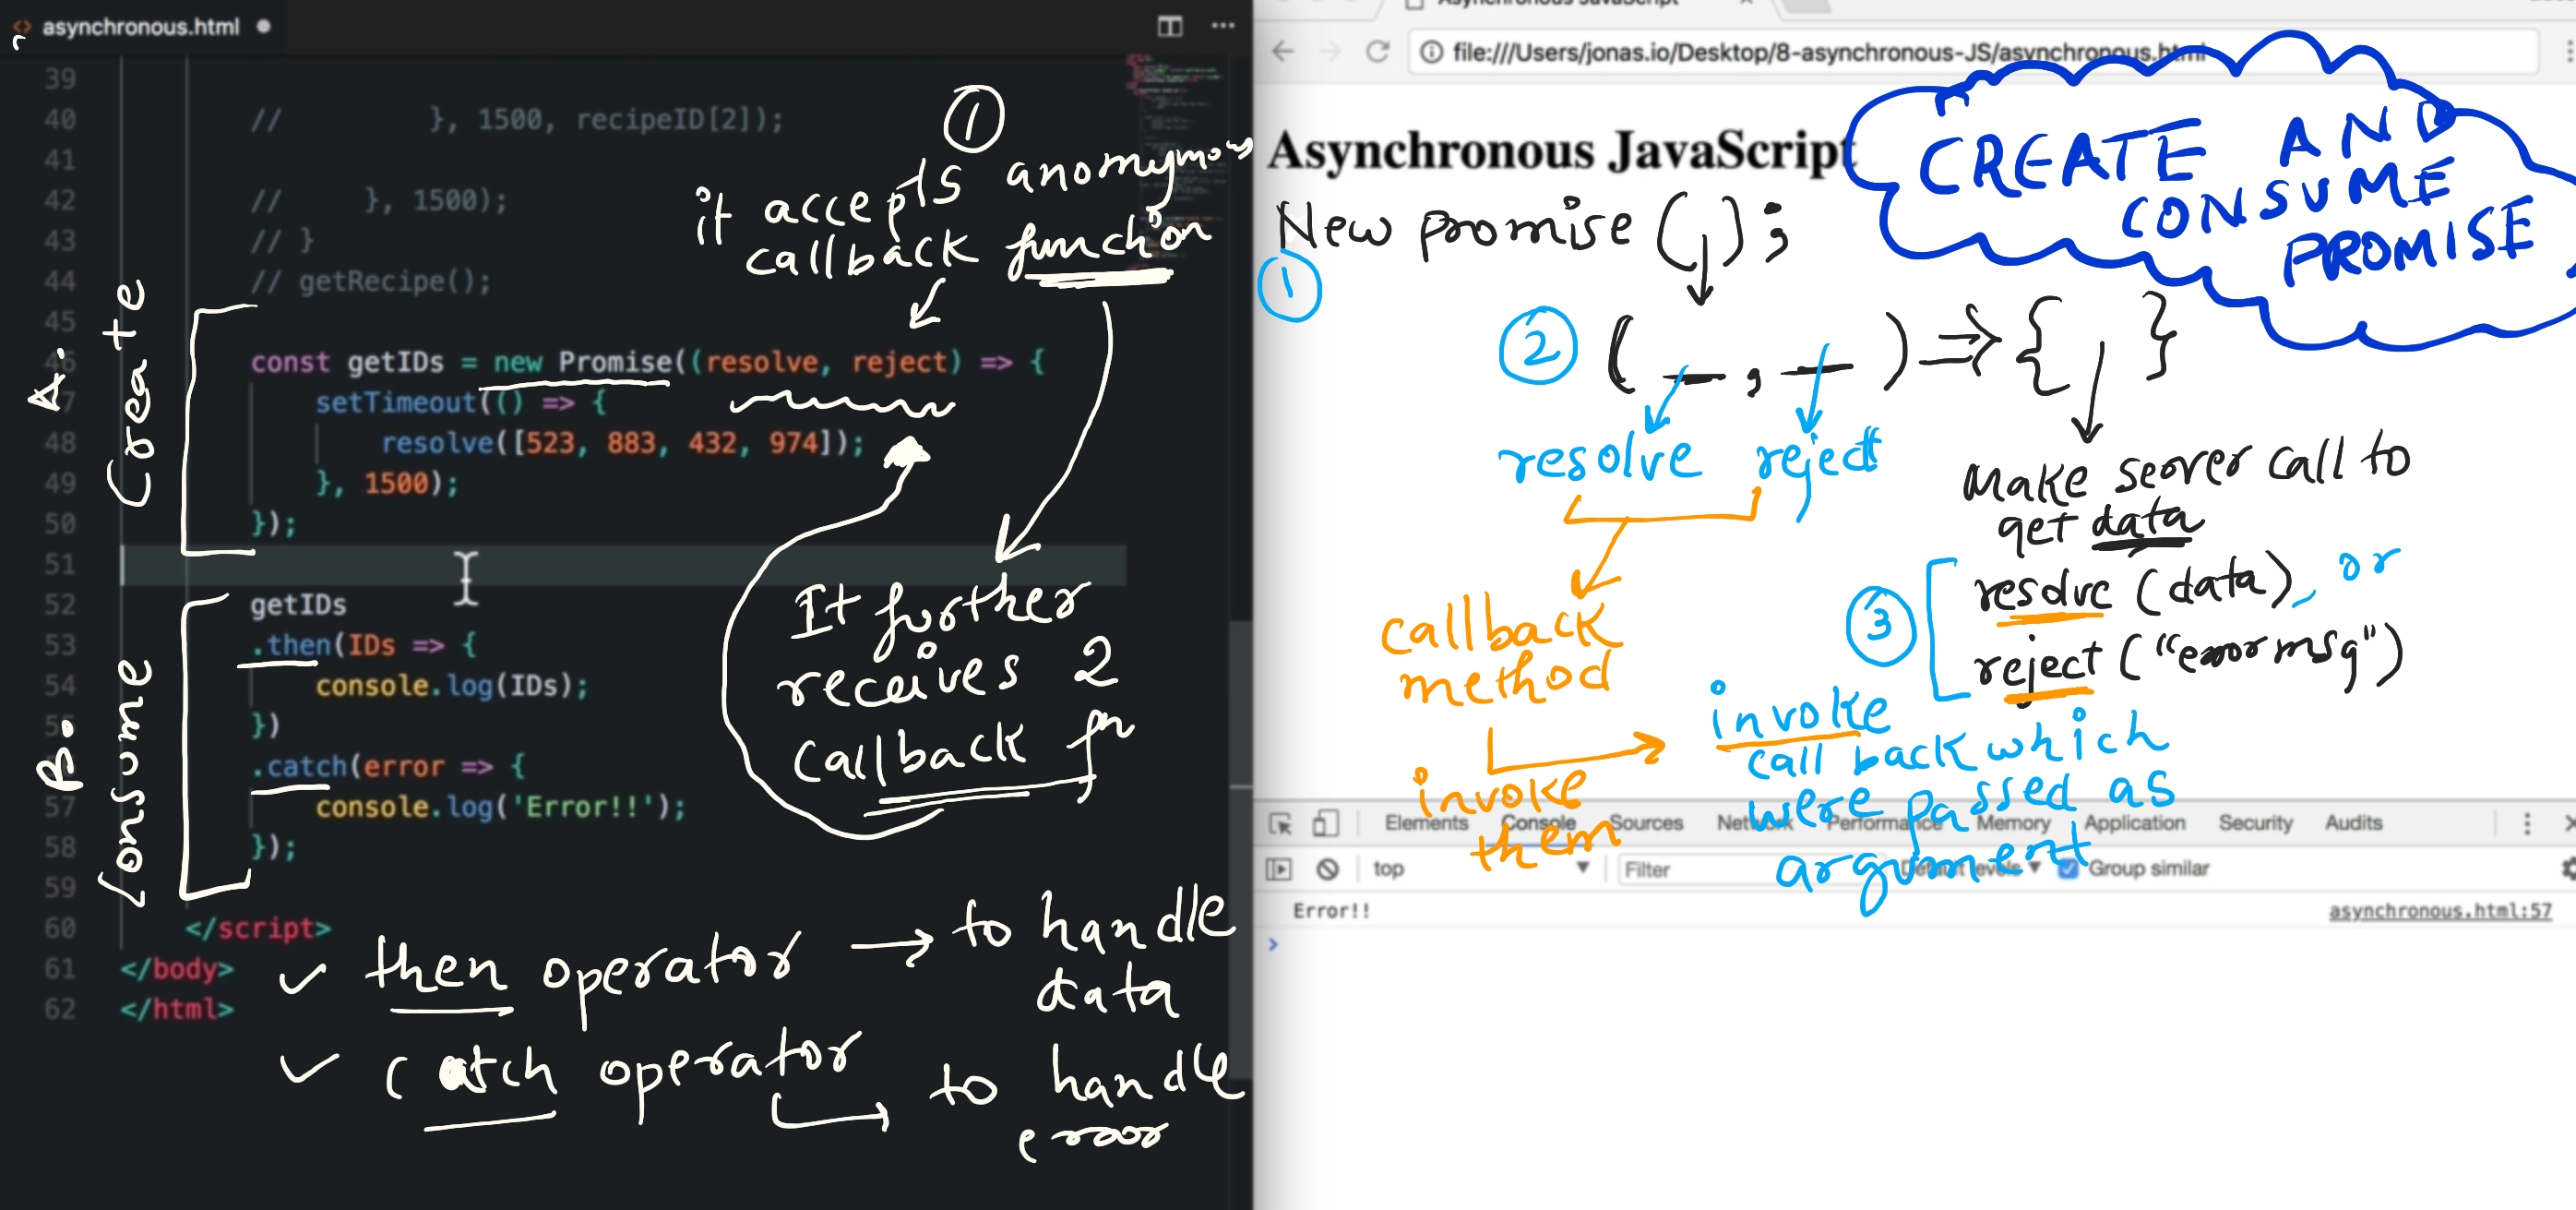 asynchronous.html
39
40 //         }, 1500, recipeID[2]);
41
42 //     }, 1500);
43 // }
44 // getRecipe();
45
46 const getIDs = new Promise((resolve, reject) => {
7 setTimeout(() => {
48 resolve([523, 883, 432, 974]);
49 }, 1500);
50 });
51
52 getIDs
53 .then(IDs => {
54 console.log(IDs);
55 })
.catch(error => {
57 console.log('Error!!');
58 });
59
60 </script>
61 </body>
62 </html>
A. Create
B. Consume
1
it accepts anomymous
callback function
It further
receives 2
callback fn
✓ then operator → to handle
data
✓ catch operator → to handle
error
Asynchronous JavaScript
file:///Users/jonas.io/Desktop/8-asynchronous-JS/asynchronous.html
Asynchronous JavaScript
CREATE AND
CONSUME
PROMISE
New promise ( );
1
2 ( _ , _ ) => { }
resolve reject
Make server call to
get data
3 resolve (data), or
reject ("error msg")
callback
method
invoke
them
invoke
call back which
were passed as
argument
Elements Console Sources Network Performance Memory Application Security Audits
top Filter Default levels Group similar
Error!! asynchronous.html:57